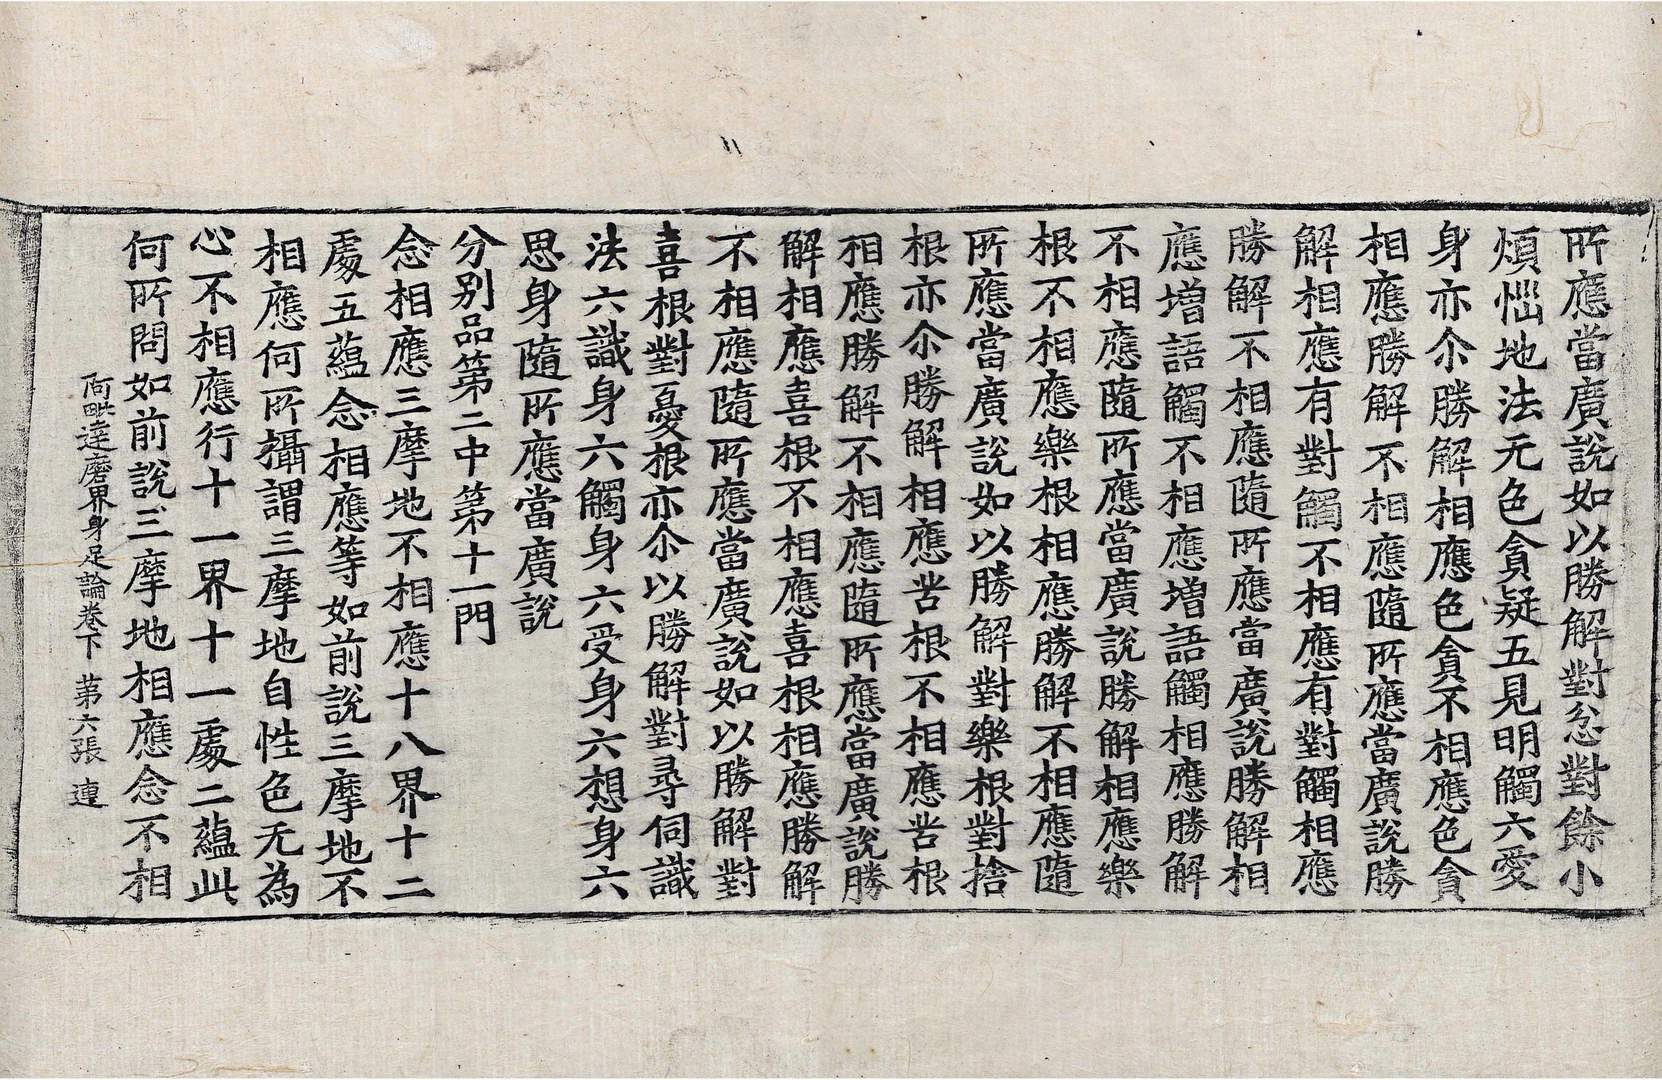 所應當廣說如以勝解對忿對餘小
煩惱地法无色貪疑五見明觸六愛
身亦尒勝解相應色貪不相應色貪
相應勝解不相應隨所應當廣說勝
解相應有對觸不相應有對觸相應
勝解不相應隨所應當廣說勝解相
應增語觸不相應增語觸相應勝解
不相應隨所應當廣說勝解相應樂
根不相應樂根相應勝解不相應隨
所應當廣說如以勝解對樂根對捨
根亦尒勝解相應苦根不相應苦根
相應勝解不相應隨所應當廣說勝
解相應喜根不相應喜根相應勝解
不相應隨所應當廣說如以勝解對
喜根對憂根亦尒以勝解對尋伺識
法六識身六觸身六受身六想身六
思身隨所應當廣說
分別品第二中第十一門
念相應三摩地不相應十八界十二
處五蘊念相應等如前說三摩地不
相應何所攝謂三摩地自性色无為
心不相應行十一界十一處二蘊此
何所問如前說三摩地相應念不相
阿毗達磨界身足論卷下 第六張 連